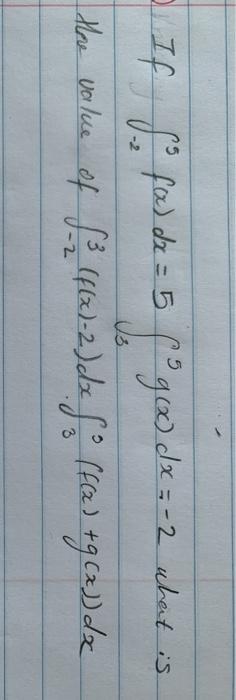 If ∫₋₂⁵ f(x) dx = 5 ∫₃⁵ g(x) dx = -2 what is
the value of ∫₋₂³ (f(x)-2)dx ∫₃⁵ (f(x) + g(x))dx